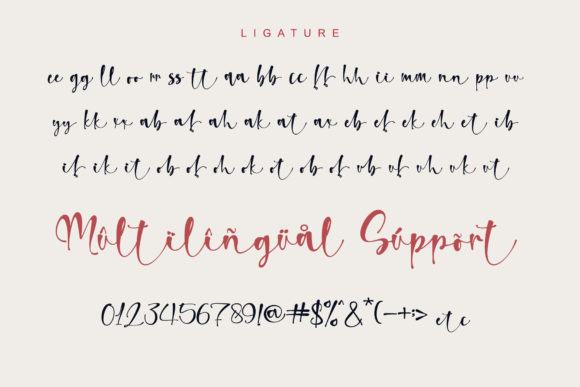 LIGATURE
ee gg ll oo rr ss tt aa bb cc ff hh ii mm nn pp vv
yy kk xx ab af ah ak at ax eb ef ek eh et ib
if ik it ob of oh ok ot ob of ub uf uh uk ut
Mûltïlîñgüål Súppõrt
0123456789!@#$%^&*(-+:> etc